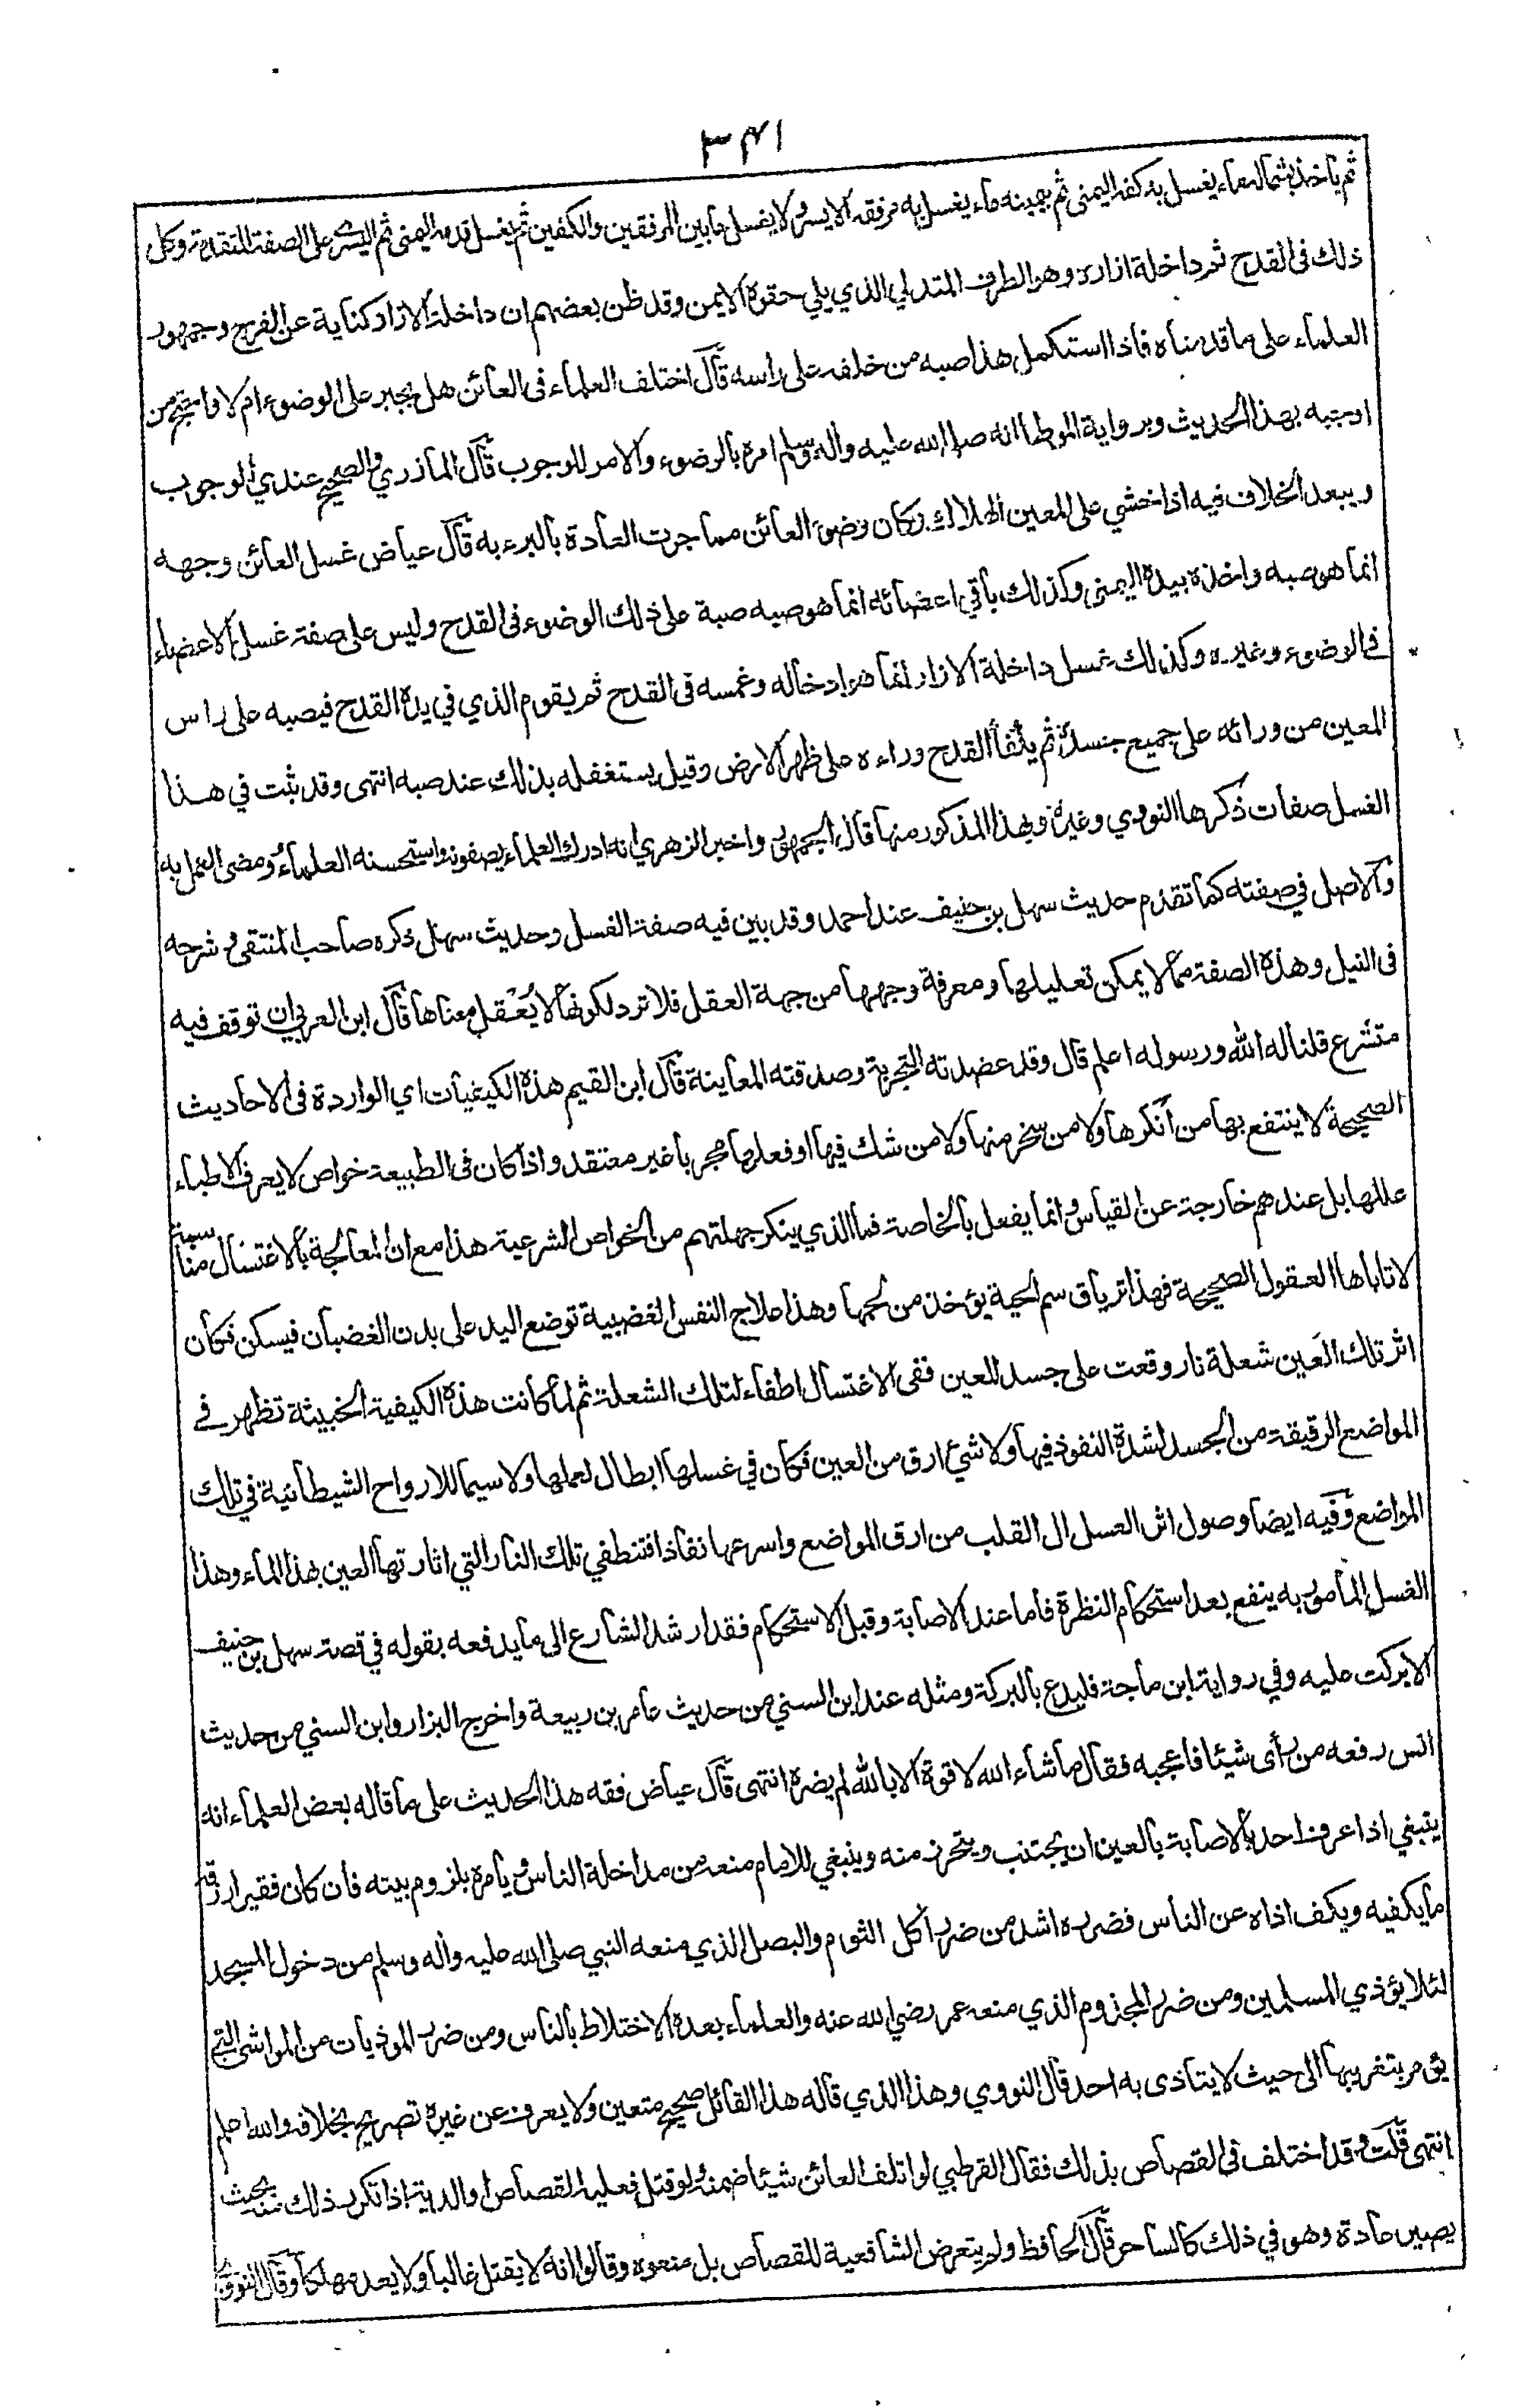 ٣٤١
ثم يأخذ بشماله ماء يغسل به كفه اليمنى ثم بيمينه ماء يغسل به مرفقه الايسر ولا يغسل ما بين المرفقين والكفين ثم يغسل قدمه اليمنى ثم اليسرى على الصفة المتقدمة وكل
ذلك فى القدح ثم داخلة ازاره وهو الطرف المتدلي الذي يلي حقوه الايمن وقد ظن بعضهم ان داخلة الازار كناية عن الفرج وجمهور
العلماء على ما قدمناه فاذا استكمل هذا صبه من خلفه على راسه قال اختلف العلماء فى العائن هل يجبر على الوضوء ام لا واحتج من
اوجبه بهذا الحديث وبرواية الموطا انه صلى الله عليه واله وسلم امره بالوضوء والامر للوجوب قال المأذري والصحيح عندي الوجوب
ويبعد الخلاف فيه اذا خشي على المعين الهلاك وكان وضوء العائن مما جرت العادة بالبرء به قال عياض غسل العائن وجهه
انما هو صبه واخذه بيده اليمنى وكذلك باقي اعضائه انما هو صبه صبة على ذلك الوضوء فى القدح وليس على صفة غسل الاعضاء
في الوضوء وغيره وكذلك غسل داخلة الازار انما هو ادخاله وغمسه فى القدح ثم يقوم الذي في يده القدح فيصبه على راس
المعين من ورائه على جميع جسده ثم يكفأ القدح وراءه على ظهر الارض وقيل يستغفله بذلك عند صبه انتهى وقد ثبت في هذا
الغسل صفات ذكرها النووي وغيره وبهذا المذكور منها قال الجمهور واخبر الزهري انه ادرك العلماء يصفونه واستحسنه العلماء ومضى العمل به
والاصل في صفته كما تقدم حديث سهل بن حنيف عند احمد وقد بين فيه صفة الغسل وحديث سهل ذكره صاحب المنتقى وشرحه
فى النيل وهذه الصفة مما لا يمكن تعليلها ومعرفة وجهها من جهة العقل فلا ترد لكونها لا يُعْقل معناها قال ابن العربي ان توقف فيه
متشرع قلنا له الله ورسوله اعلم قال وقد عضدته التجربة وصدقته المعاينة قال ابن القيم هذه الكيفيات اي الواردة فى الاحاديث
الصحيحة لا ينتفع بها من أنكرها ولا من سخر منها ولا من شك فيها او فعلها مجربا غير معتقد واذا كان فى الطبيعة خواص لا يعرف الاطباء
عللها بل عندهم خارجة عن القياس وانما يفعل بالخاصة فما الذي ينكر جهلتهم من الخواص الشرعية هذا مع ان المعالجة بالاغتسال مناسبة
لا تاباها العقول الصحيحة فهذا ترياق سم الحية يؤخذ من لحمها وهذا علاج النفس الغضبية توضع اليد على بدن الغضبان فيسكن فكان
اثر تلك العَين شعلة نار وقعت على جسد المعين ففى الاغتسال اطفاء لتلك الشعلة ثم لما كانت هذه الكيفية الخبيثة تظهر في
المواضع الرقيقة من الجسد لشدة النفوذ فيها ولا شئ ارق من العين فكان في غسلها ابطال لعملها ولا سيما للارواح الشيطانية في تلك
المواضع وفيه ايضا وصول اثر الغسل ال القلب من ارق المواضع واسرعها نفاذا فتنطفي تلك النار التي اثارتها العين بهذا الماء وهذا
الغسل المأمور به ينفع بعد استحكام النظرة فاما عند الاصابة وقبل الاستحكام فقد ارشد الشارع الى ما يدفعه بقوله في قصة سهل بن حنيف
الا بركت عليه وفي رواية ابن ماجة فليدع بالبركة ومثله عند ابن السني من حديث عامر بن ربيعة واخرج البزار وابن السني من حديث
انس رفعه من رأى شيئا فاعجبه فقال ما شاء الله لا قوة الا بالله لم يضره انتهى قال عياض فقه هذا الحديث على ما قاله بعض العلماء انه
ينبغي اذا عرف احد بالاصابة بالعين ان يجتنب ويتحرز منه وينبغي للامام منعه من مداخلة الناس ويأمره بلزوم بيته فان كان فقيرا رزقه
ما يكفيه ويكف اذاه عن الناس فضرره اشد من ضرر آكل الثوم والبصل الذي منعه النبي صلى الله عليه واله وسلم من دخول المسجد
لئلا يؤذي المسلمين ومن ضرر المجذوم الذي منعه عمر رضي الله عنه والعلماء بعده الاختلاط بالناس ومن ضرر الموذيات من المواشى التي
يؤمر بتغريبها الى حيث لا يتاذى به احد قال النووي وهذا الذي قاله هذا القائل صحيح متعين ولا يعرف عن غيره تصريح بخلافه والله اعلم
انتهى قلت وقد اختلف فى القصاص بذلك فقال القرطبي لو اتلف العائن شيئا ضمنه ولو قتل فعليه القصاص او الدية اذا تكرر ذلك منه بحيث
يصير عادة وهو في ذلك كالساحر قال الحافظ ولم يتعرض الشافعية للقصاص بل منعوه وقالوا انه لا يقتل غالبا ولا يعد مهلكا وقال النووي